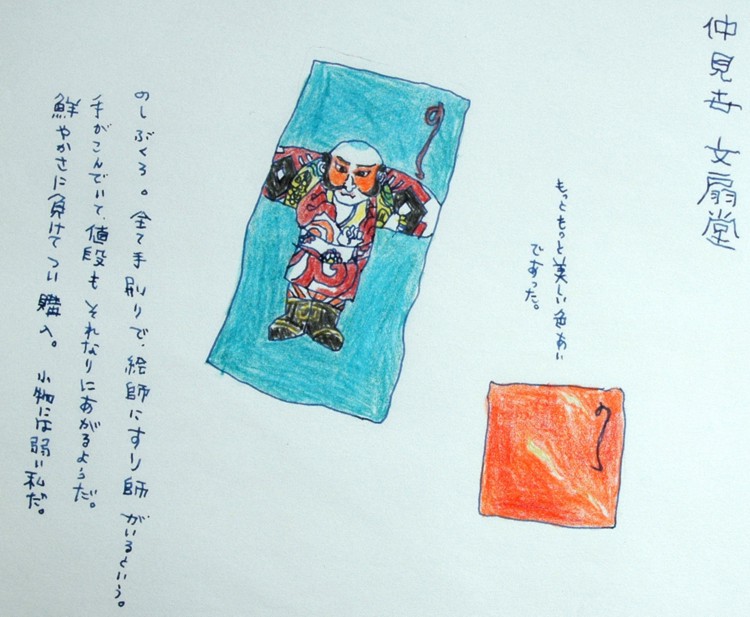 仲見世 文扇堂
もっともっと美しい色あい
であった。
のし
のし
のしぶくろ。全て手刷りで、絵師にすり師がいるという。
手がこんでいて、値段もそれなりにあがるようだ。
鮮やかさに負けてつい購入。小物には弱い私だ。